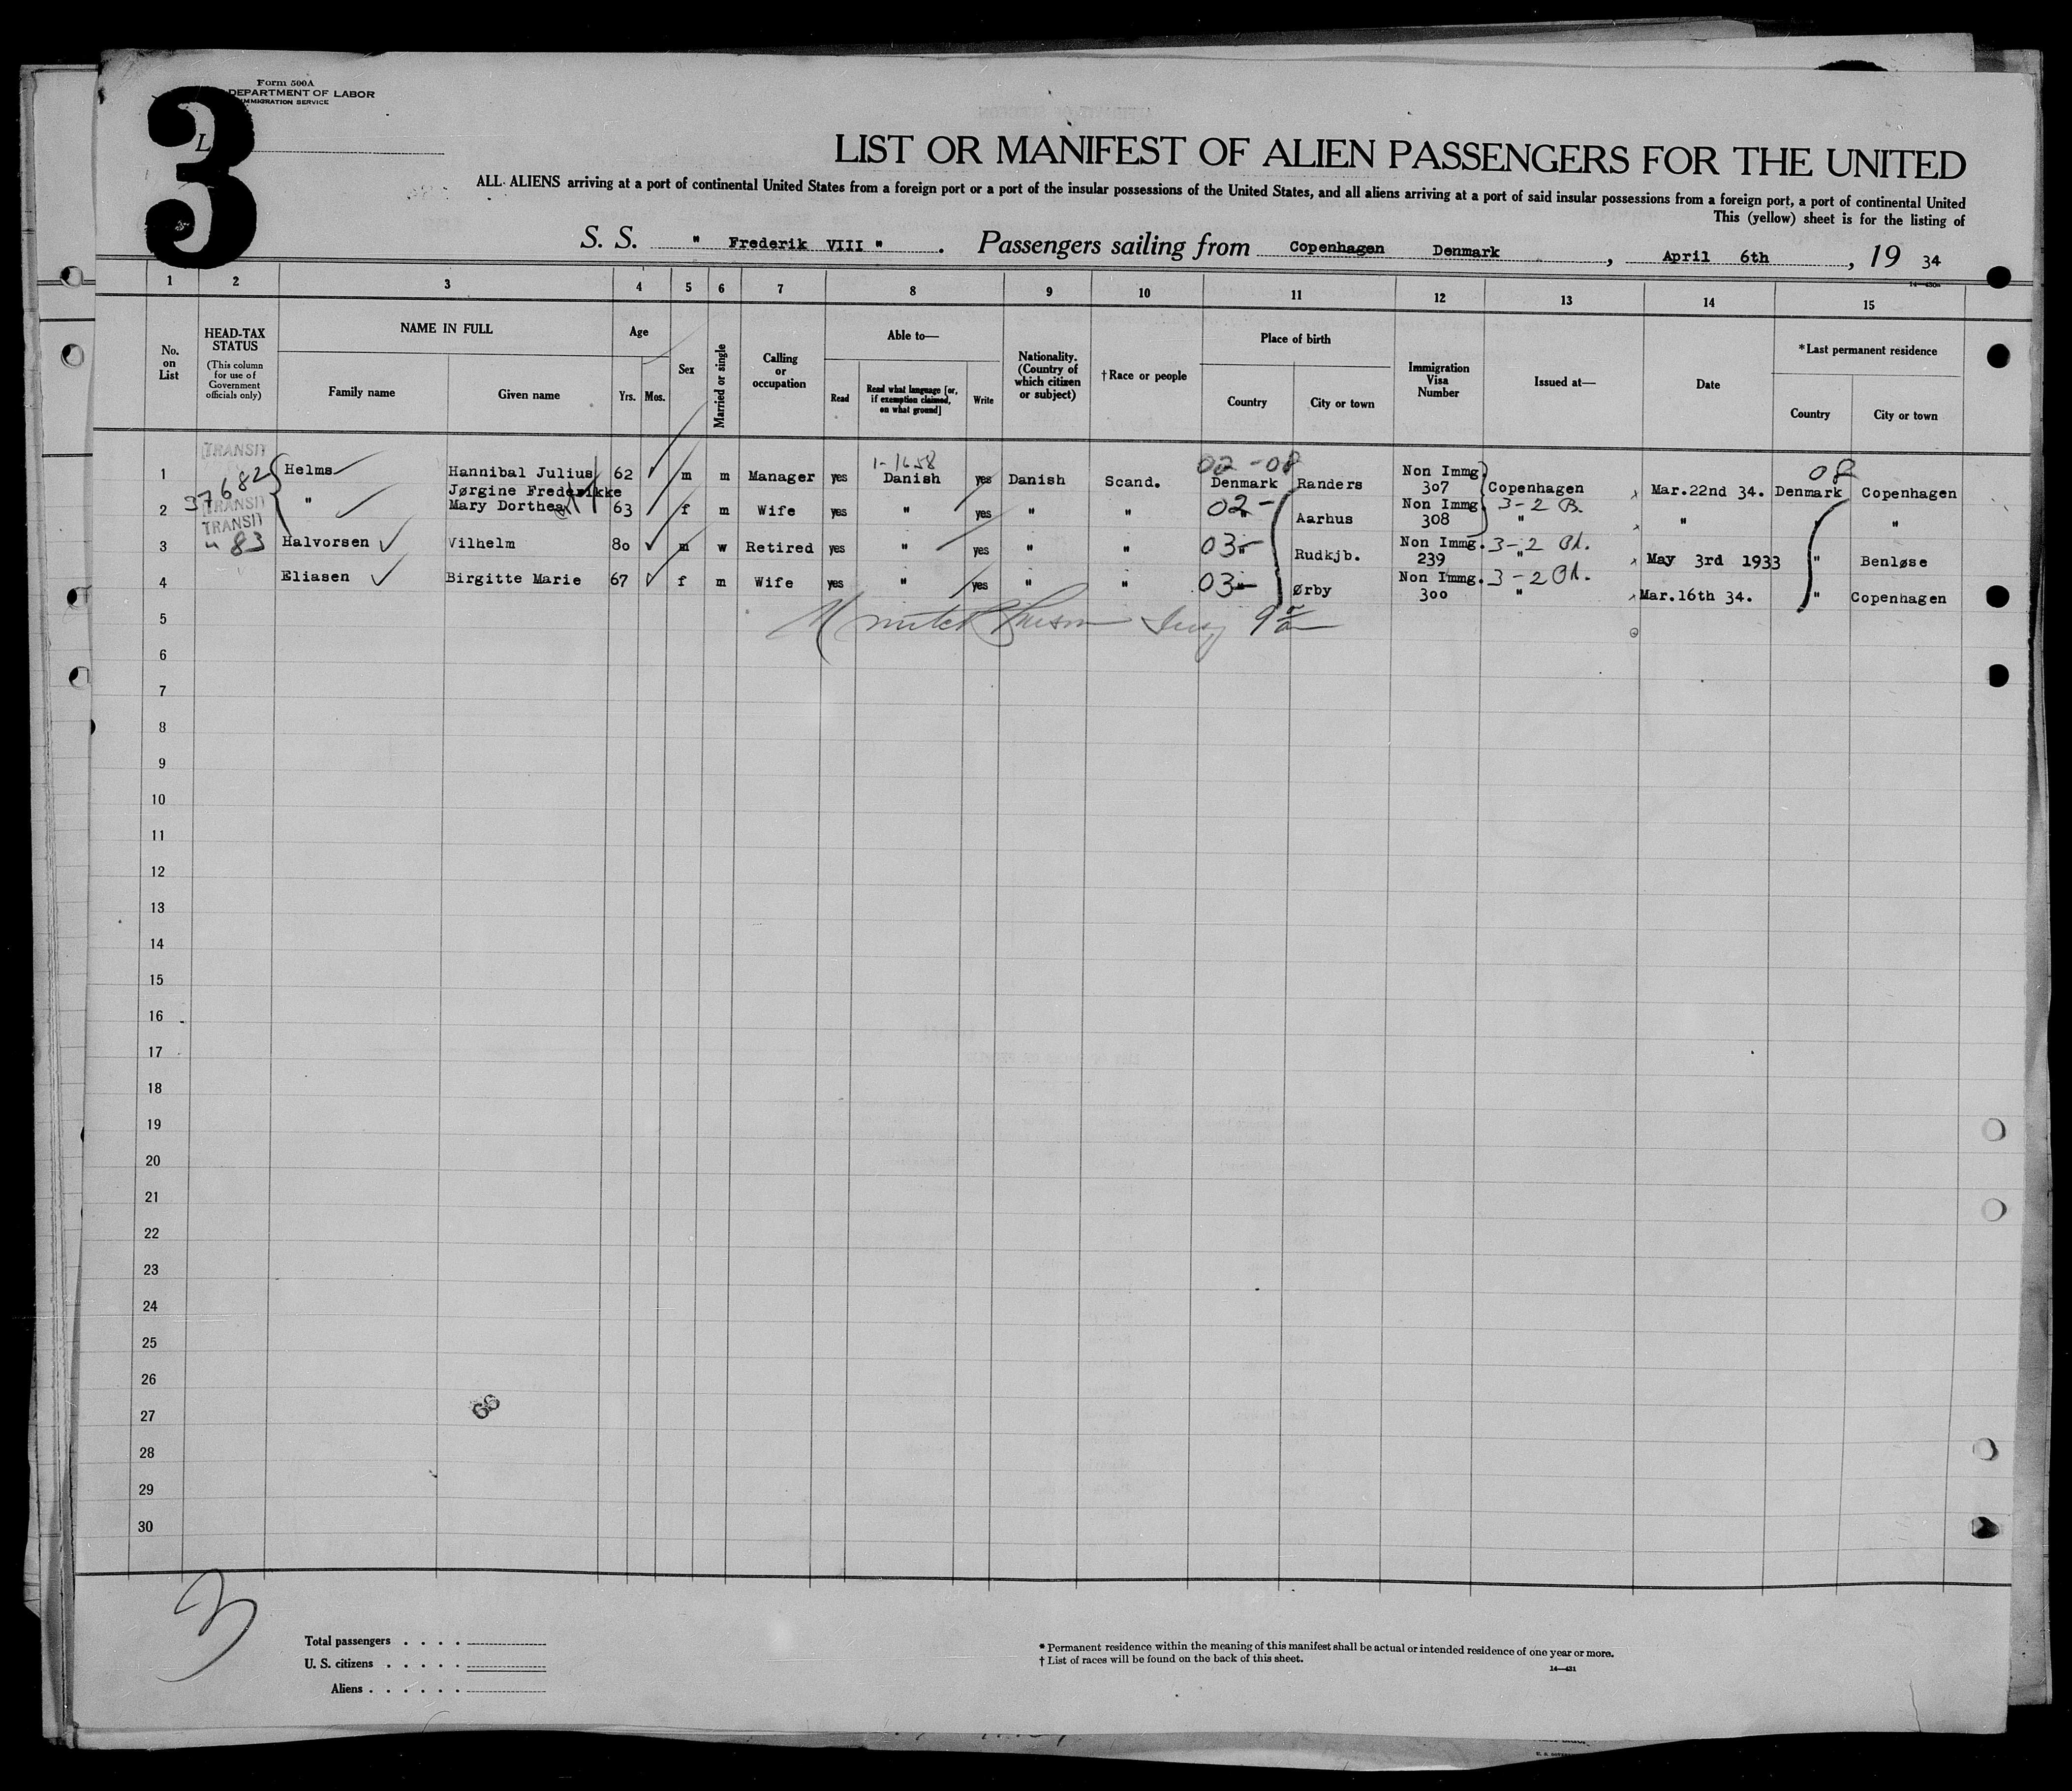 Form 500A
DEPARTMENT OF LABOR
IMMIGRATION SERVICE
3
L
LIST OR MANIFEST OF ALIEN PASSENGERS FOR THE UNITED
ALL ALIENS arriving at a port of continental United States from a foreign port or a port of the insular possessions of the United States, and all aliens arriving at a port of said insular possessions from a foreign port, a port of continental United
This (yellow) sheet is for the listing of
S. S. " Frederik VIII " . Passengers sailing from Copenhagen Denmark , April 6th , 19 34
1 2 3 4 5 6 7 8 9 10 11 12 13 14 15
No. on List
HEAD-TAX STATUS
(This column for use of Government officials only)
NAME IN FULL
Family name Given name
Age
Yrs. Mos.
Sex
Married or single
Calling or occupation
Able to—
Read
Read what language [or, if exemption claimed, on what ground]
Write
Nationality. (Country of which citizen or subject)
†Race or people
Place of birth
Country City or town
Immigration Visa Number
Issued at—
Date
*Last permanent residence
Country City or town
TRANSIT
37682
1-1658
02-08
08
1 Helms Hannibal Julius 62 m m Manager yes Danish yes Danish Scand. Denmark Randers Non Immg 307 Copenhagen Mar.22nd 34. Denmark Copenhagen
TRANSIT
2 " Jørgine Frederikke Mary Dorthea 63 f m Wife yes " yes " " 02- " Aarhus Non Immg 308 3-2 B. " " " "
TRANSIT
" 83
3 Halvorsen Vilhelm 80 m w Retired yes " yes " " 03- " Rudkjb. Non Immg. 239 3-2 " May 3rd 1933 " Benløse
4 Eliasen Birgitte Marie 67 f m Wife yes " yes " " 03- " Ørby Non Immg. 300 3-2 " Mar.16th 34. " Copenhagen
5
6
7
8
9
10
11
12
13
14
15
16
17
18
19
20
21
22
23
24
25
26
27
28
29
30
3
Total passengers . . . .
U. S. citizens . . . . .
Aliens . . . . . .
* Permanent residence within the meaning of this manifest shall be actual or intended residence of one year or more.
† List of races will be found on the back of this sheet.
14—431